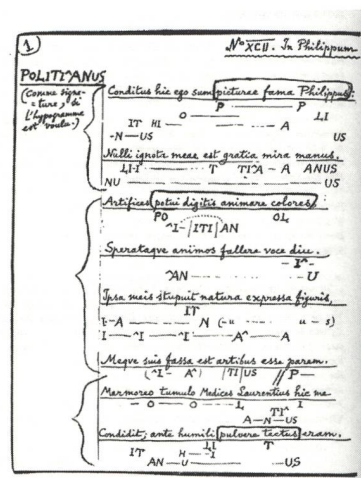 1
N° XCII. In Philippum
POLITI^ANUS
(Comme signa-
ture, si
l'hypogramme
est voulu.)
Conditus hic ego sum picturae fama Philippus:
P — P
O — LI
IT HI — A
-N — US
Nulli ignota meae est gratia mira manus.
LI-I — T TI^A - A ANUS
NU — US
Artifices potui digitis animare colores,
PO OL
^I-|ITI|AN
Sperataque animos fallere voce diu.
- I^ -
^AN — U
Ipsa meis stupuit natura expressa figuris,
IT
I-A — N (-u — u - s)
I — ^I — I — A^ — A
Meque suis fassa est artibus esse parem.
(^I - A^) |TI|US // P —
Marmoreo tumulo Medices Laurentius hic me
- O — O — L I
TI^
A-N-US
Condidit; ante humili pulvere tectus eram.
IT H - LI I T
AN - U — US